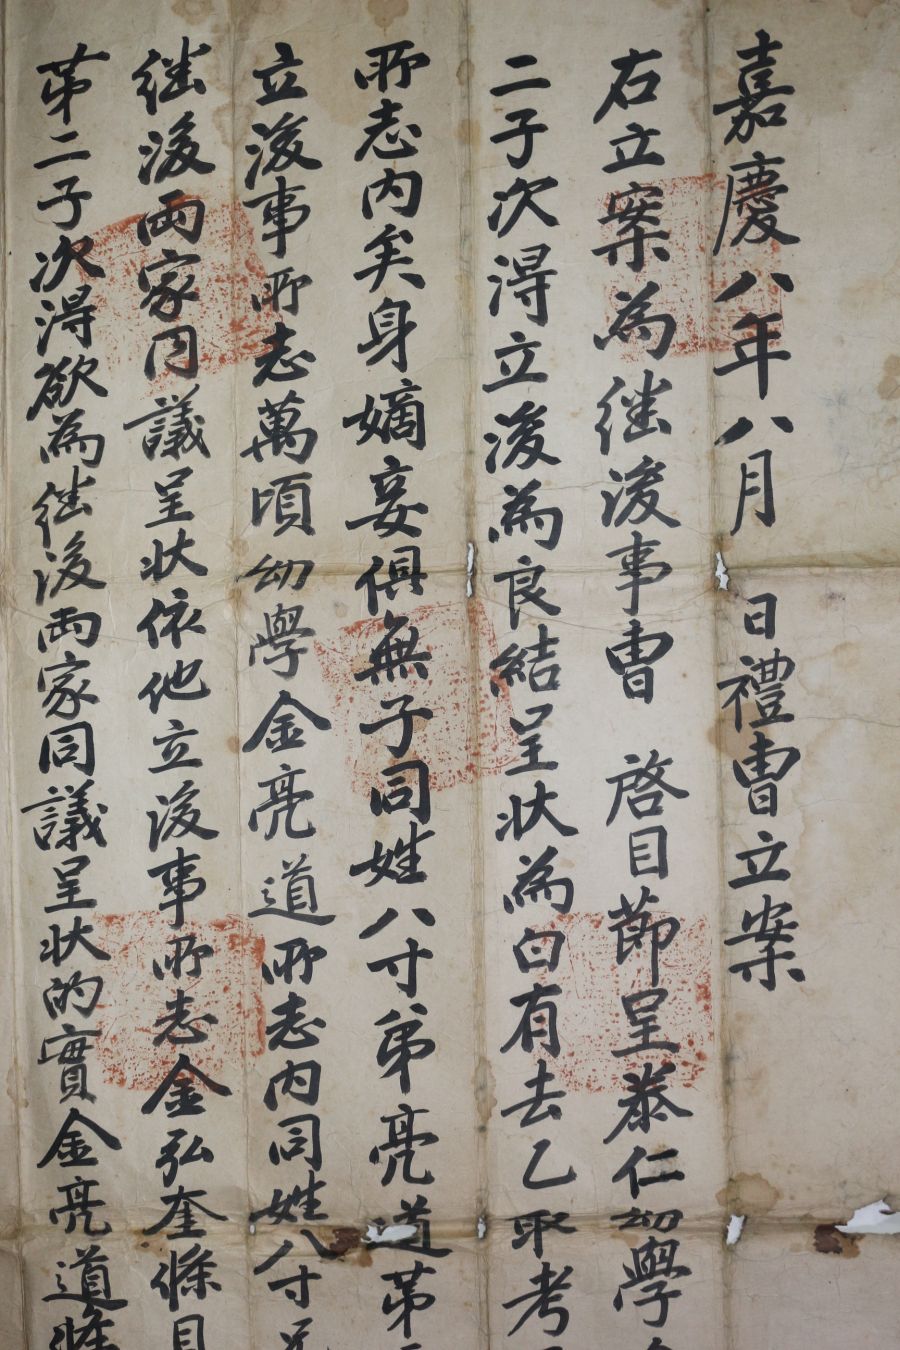 嘉慶八年八月 日禮曹立案
右立案為继後事曹 啓目節呈泰仁幼學
二子次淂立後為良結呈狀為白有去乙取考
所志內矣身嫡妾俱無子同姓八寸弟亮道第
立後事所志萬頃幼學金亮道所志內同姓八寸
继後两家同議呈狀依他立後事所志金弘奎條目
第二子次淂欲為继後两家同議呈狀的實金亮道條